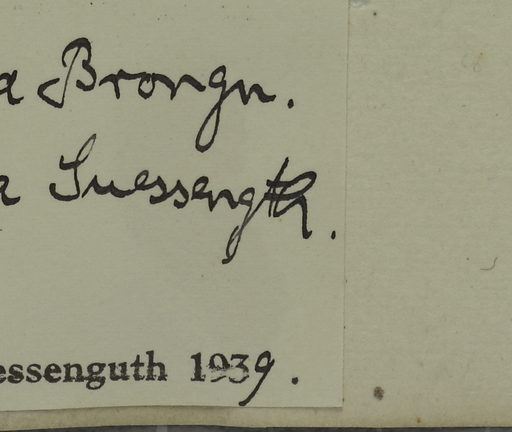 a Brongn.
a Suessength.
essenguth 1939.